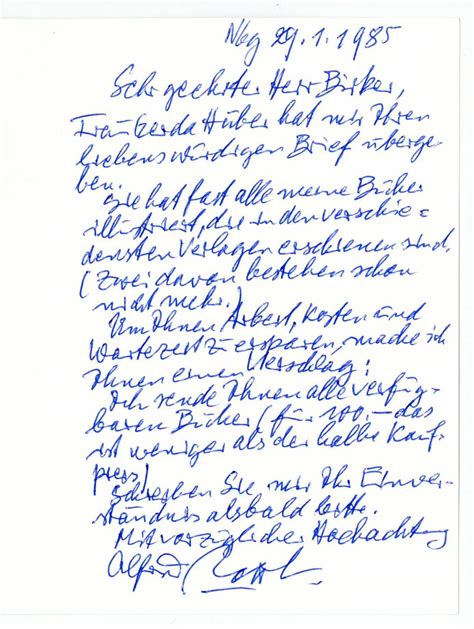 Nbg 29.1.1985
Sehr geehrter Herr Birker,
Frau Gerda Huber hat mir Ihren
liebenswürdigen Brief überge-
ben.
Sie hat fast alle meine Bücher
illustriert, die in den verschie=
densten Verlagen erschienen sind.
(Zwei davon bestehen schon
nicht mehr.)
Um Ihnen Arbeit, Kosten und
Wartezeit zu ersparen, mache ich
Ihnen einen Vorschlag:
Ich sende Ihnen alle verfüg-
baren Bücher (für 100,- das
ist weniger als der halbe Kauf-
preis)
Schreiben Sie mir Ihr Einver-
ständnis alsbald bitte.
Mit vorzüglicher Hochachtung
Alfred